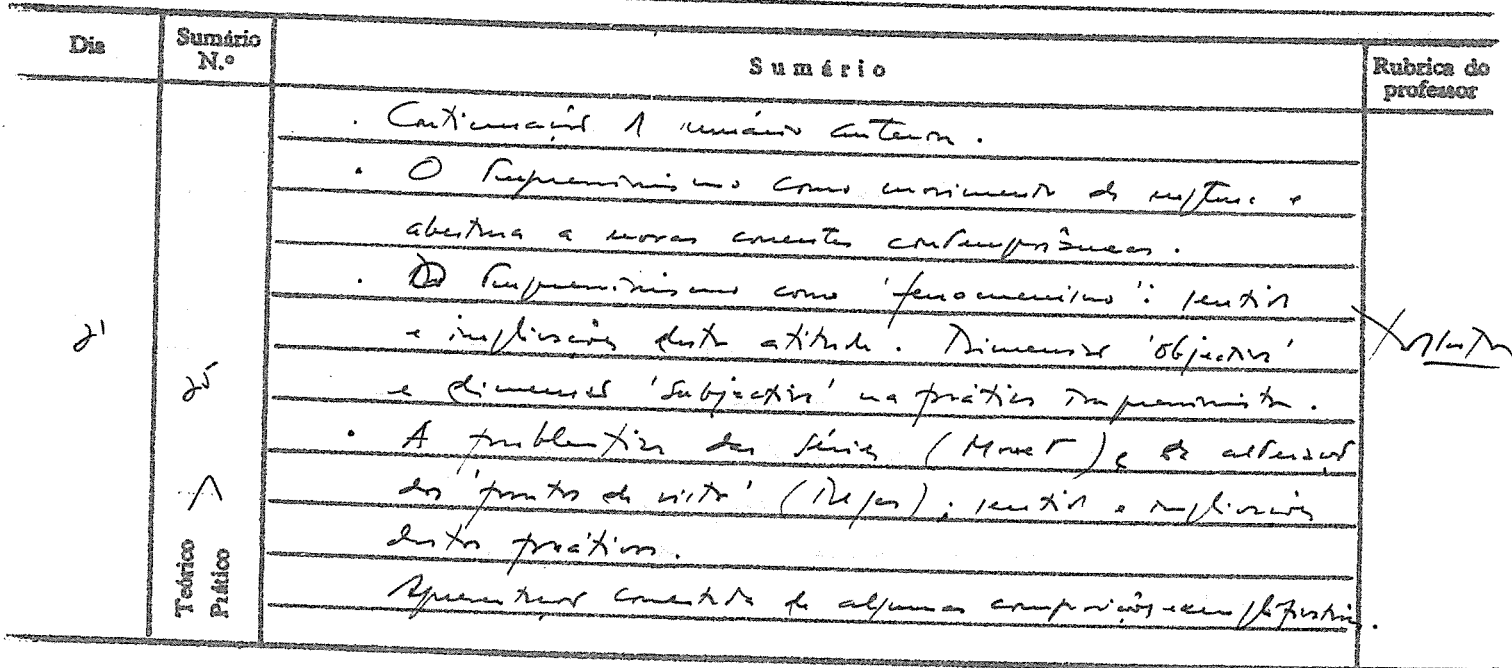 Dia
Sumário N.º
Sumário
Rubrica do professor
. Continuação do sumário anterior.
. O Impressionismo como movimento de ruptura e
abertura a novas correntes contemporâneas.
. O Impressionismo como 'fenomenismo': sentido
e implicações desta atitude. Dimensão 'objectiva'
e dimensão 'subjectiva' na prática impressionista.
. A problemática das séries (Monet) e da alteração
dos 'pontos de vista' (Degas); sentido e implicações
destas práticas.
Apresentação comentada de algumas composições exemplificativas.
21
25
Teórico
Prático